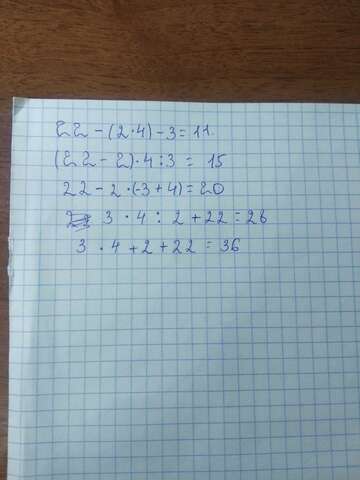 22 - (2 · 4) - 3 = 11
(22 - 2) · 4 : 3 = 15
22 - 2 · (-3 + 4) = 20
3 · 4 : 2 + 22 = 26
3 · 4 + 2 + 22 = 36